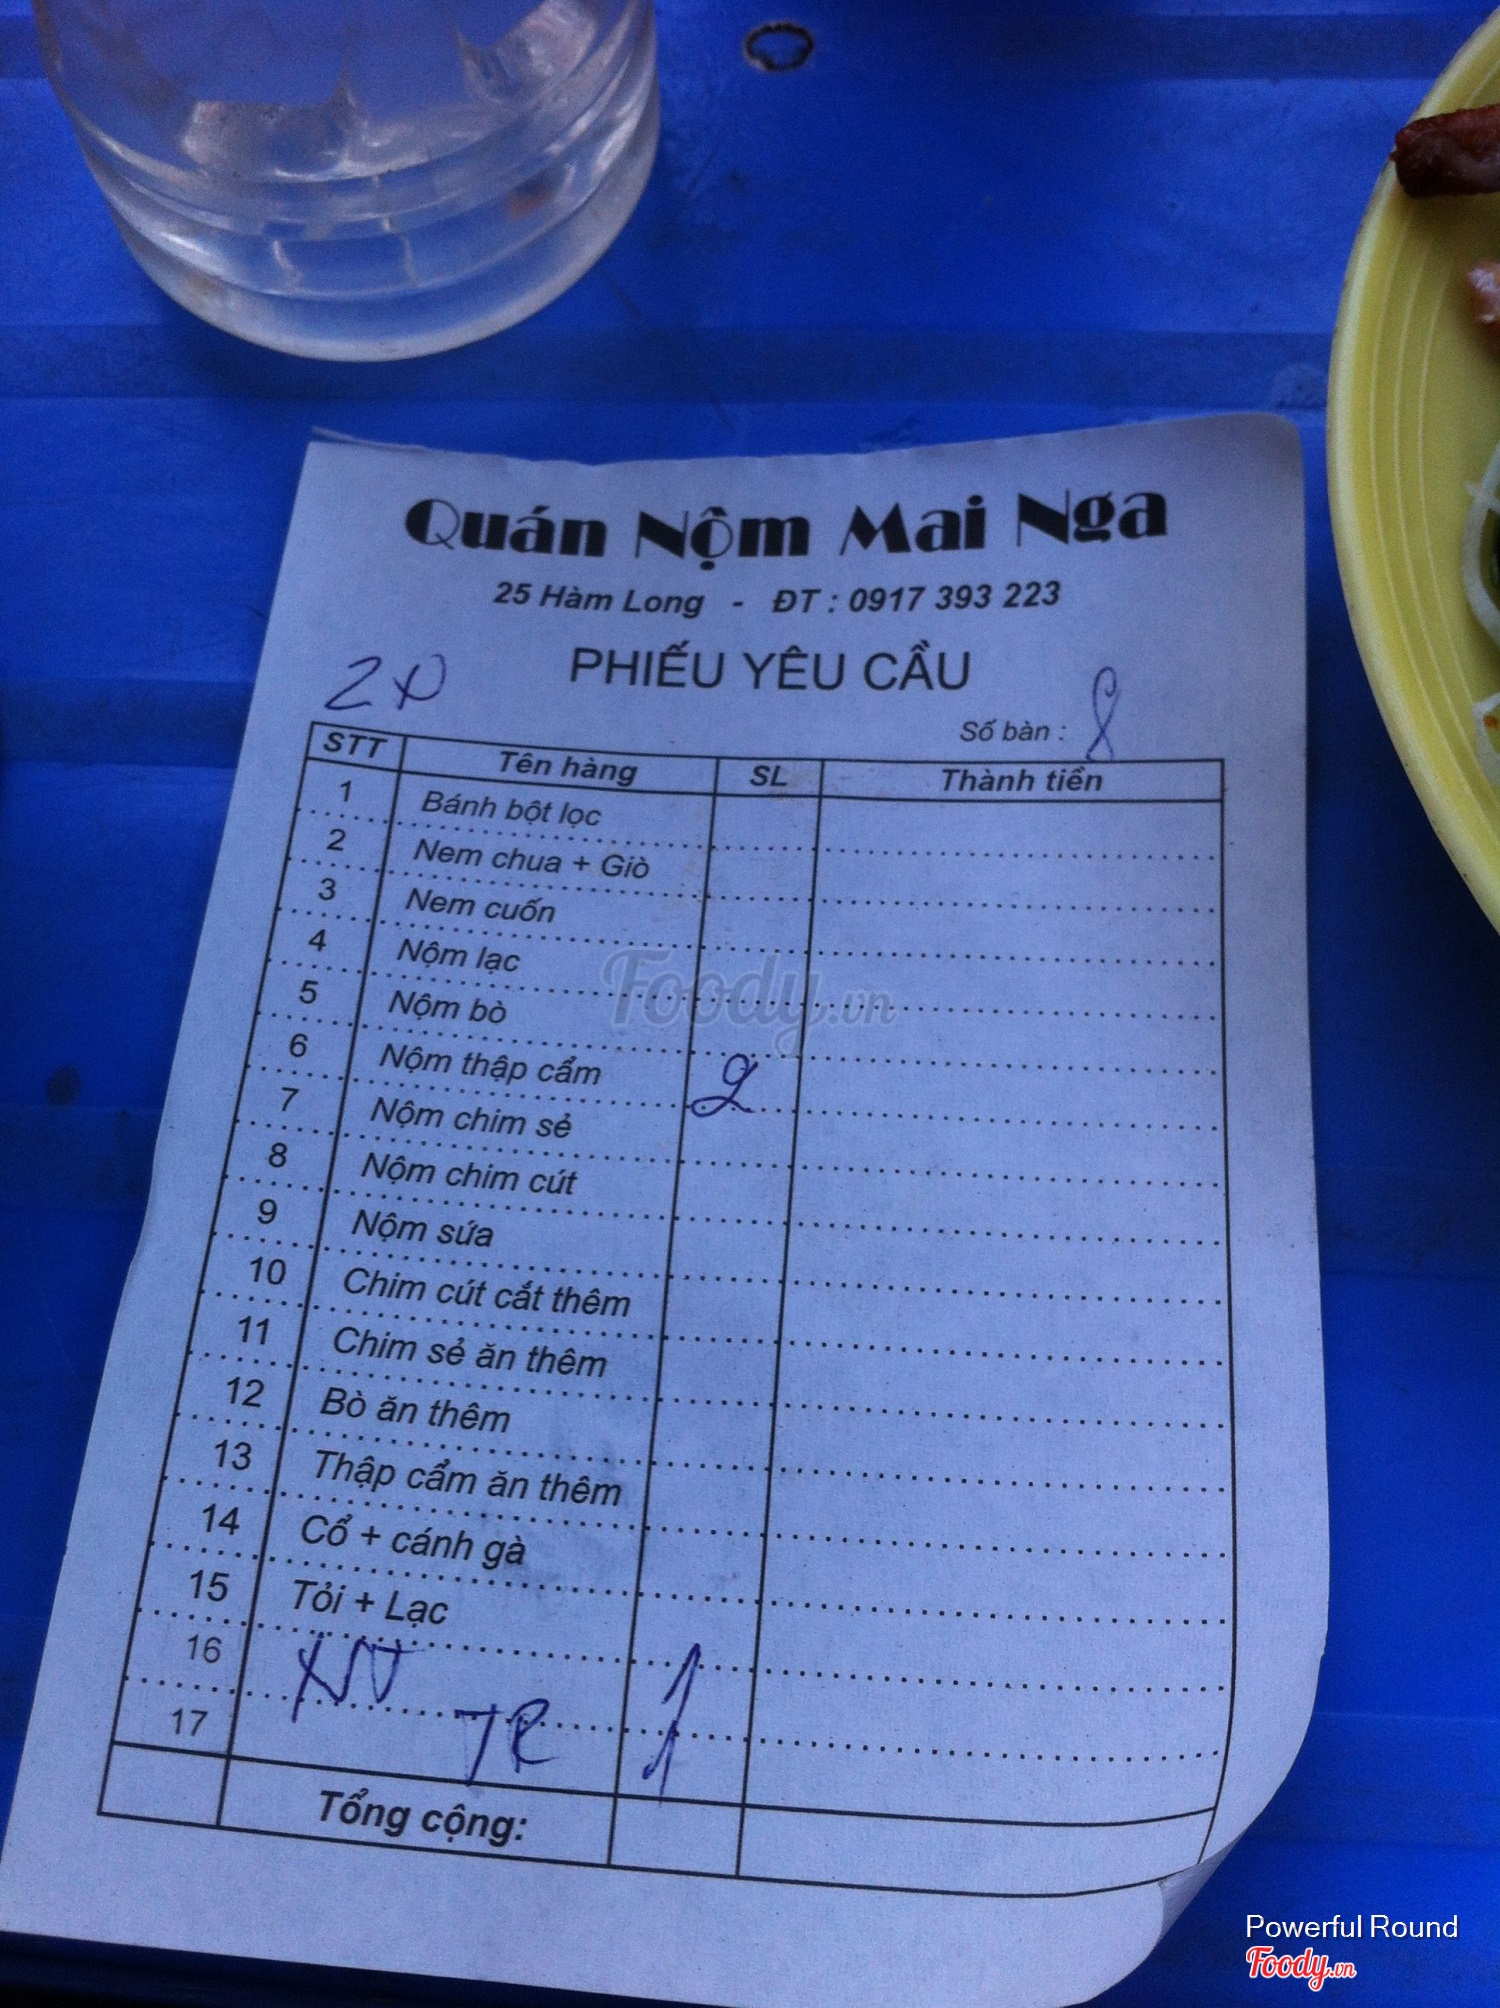 Quán Nộm Mai Nga
25 Hàm Long - ĐT : 0917 393 223
PHIẾU YÊU CẦU
Số bàn : 8
STT Tên hàng SL Thành tiền
1 Bánh bột lọc
2 Nem chua + Giò
3 Nem cuốn
4 Nộm lạc
5 Nộm bò
6 Nộm thập cẩm 2
7 Nộm chim sẻ
8 Nộm chim cút
9 Nộm sứa
10 Chim cút cắt thêm
11 Chim sẻ ăn thêm
12 Bò ăn thêm
13 Thập cẩm ăn thêm
14 Cổ + cánh gà
15 Tỏi + Lạc
16
17
Tổng cộng:
Foody.vn
Powerful Round
Foody.vn